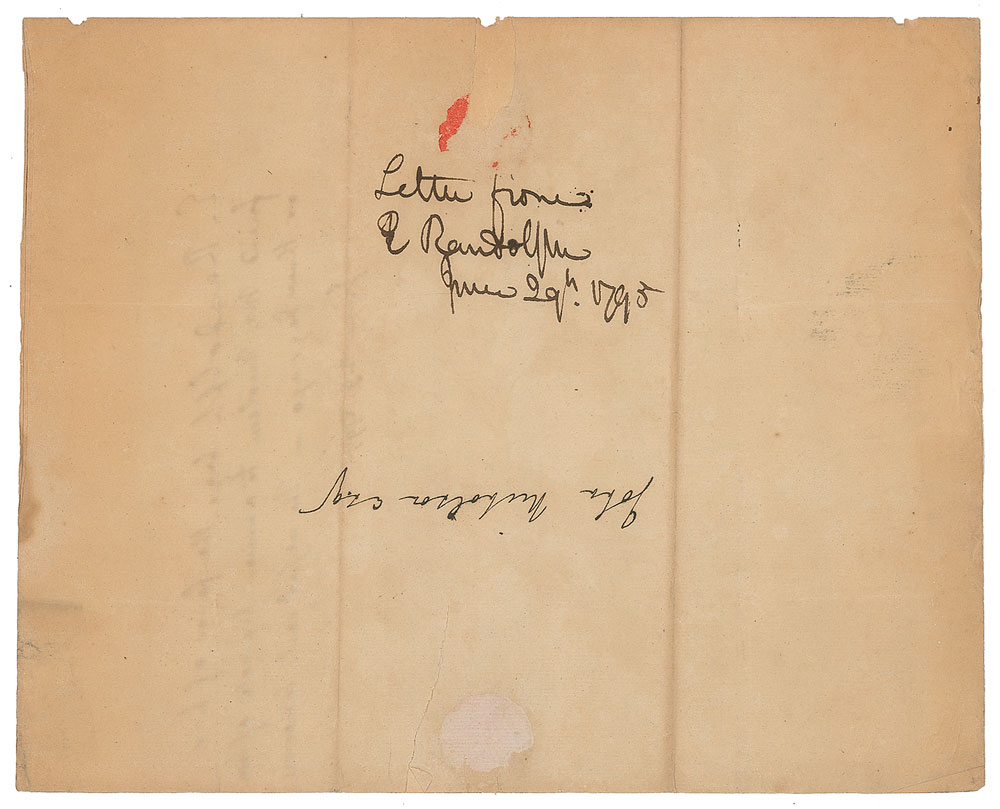 Letter from
E Randolph
June 29th. 1795
John Nicholson Esqr